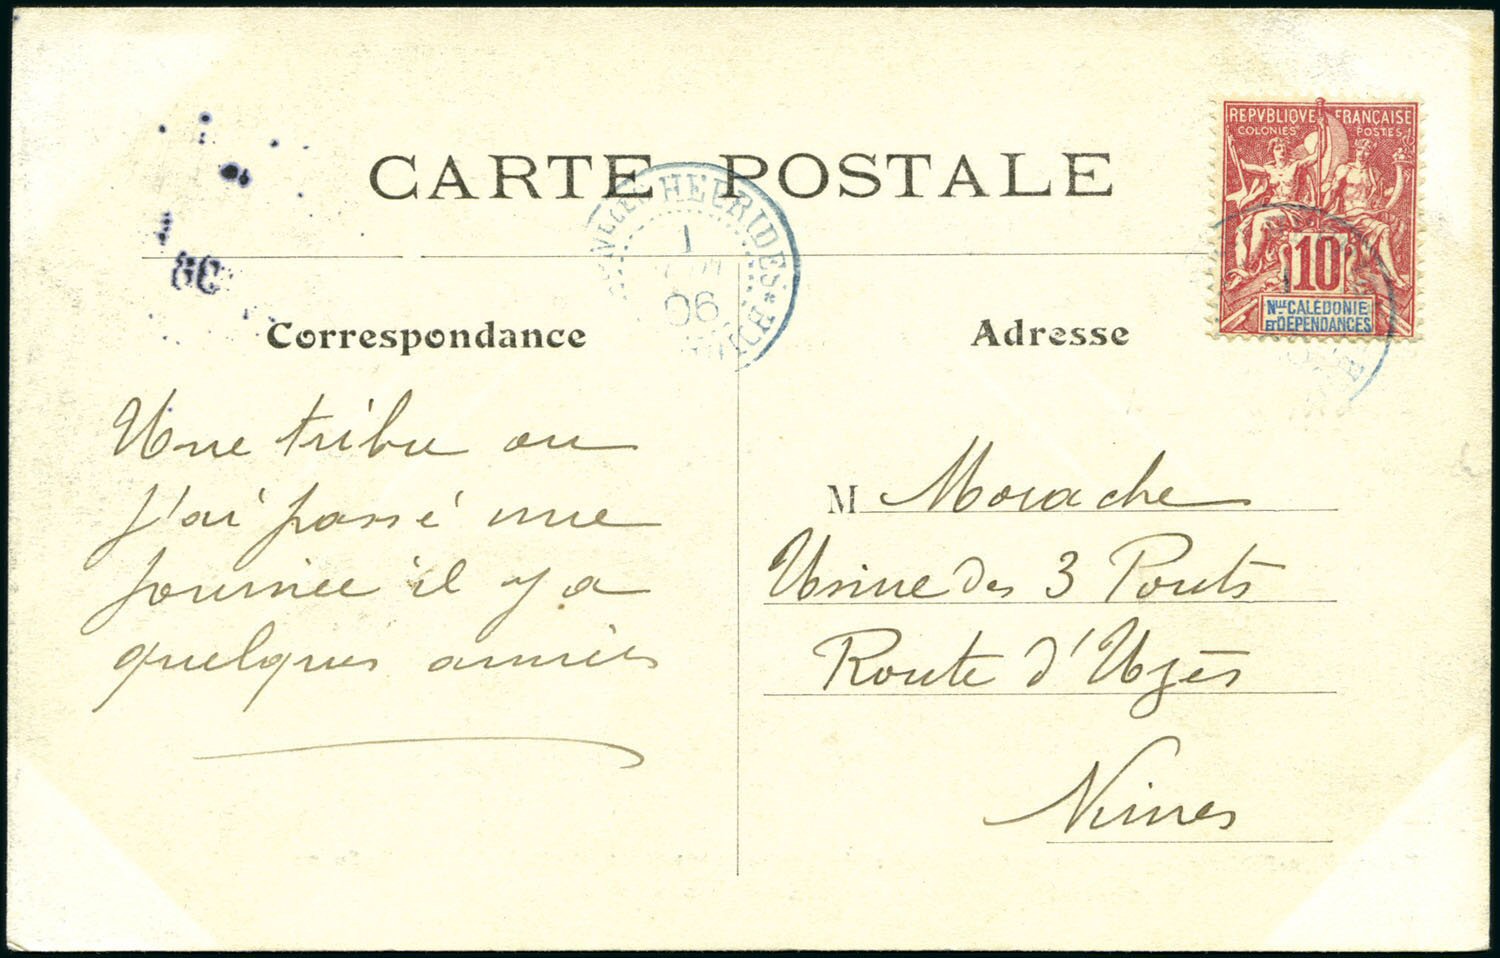 CARTE POSTALE
REPVBLIQVE FRANÇAISE
COLONIES POSTES
10
NLLE CALÉDONIE
ET DÉPENDANCES
NVELLES HEBRIDES *
1
06
Correspondance
Adresse
Une tribu ou
j'ai passé une
journée il y a
quelques années
M Morache
Usine des 3 Ponts
Route d'Uzès
Nimes